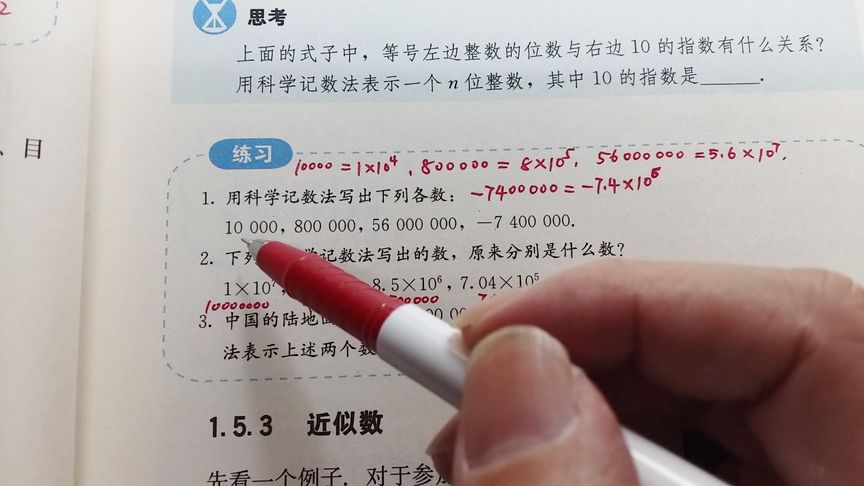 2
思考
上面的式子中，等号左边整数的位数与右边 10 的指数有什么关系？
用科学记数法表示一个 n 位整数，其中 10 的指数是______.
、目
练习
10000 = 1×10⁴, 800000 = 8×10⁵, 56000000 = 5.6×10⁷,
-7400000 = -7.4×10⁶
1. 用科学记数法写出下列各数：
10 000，800 000，56 000 000，－7 400 000.
2. 下列 学记数法写出的数，原来分别是什么数？
1×10⁷, 8.5×10⁶, 7.04×10⁵
10000000 00000
3. 中国的陆地面 00 00
法表示上述两个数
1.5.3 近似数
先看一个例子. 对于参加